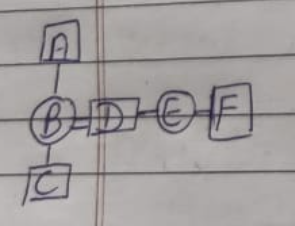 A
B D E F
C